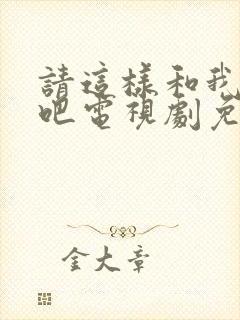 請這樣和我
吧電視劇免
金大章